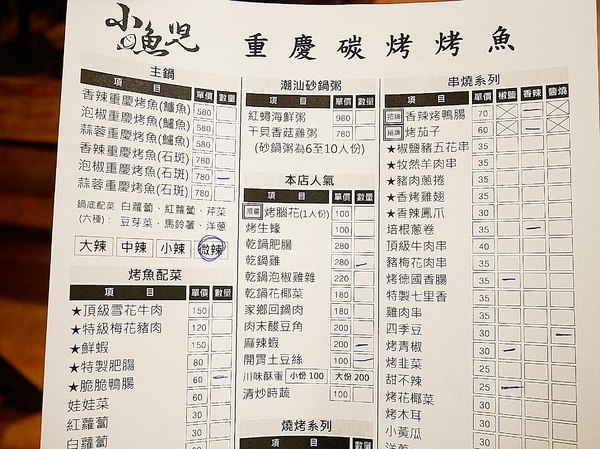 小魚兒
重慶碳烤烤魚
主鍋
項 目 單價 數量
香辣重慶烤魚(鱸魚) 580
泡椒重慶烤魚(鱸魚) 580
蒜蓉重慶烤魚(鱸魚) 580
香辣重慶烤魚(石斑) 780
泡椒重慶烤魚(石斑) 780
蒜蓉重慶烤魚(石斑) 780
鍋底配菜 白蘿蔔、紅蘿蔔、芹菜
(六種): 豆芽菜、馬鈴薯、洋蔥
大辣 中辣 小辣 微辣
烤魚配菜
項 目 單價 數量
★頂級雪花牛肉 150
★特級梅花豬肉 120
★鮮蝦 150
★特製肥腸 80
★脆脆鴨腸 60
娃娃菜 30
紅蘿蔔 30
白蘿蔔 30
潮汕砂鍋粥
項 目 單價 數量
紅蟳海鮮粥 980
干貝香菇雞粥 780
(砂鍋粥為6至10人份)
本店人氣
項 目 單價 數量
限量 烤腦花(1人份) 100
烤生蠔 100
乾鍋肥腸 280
乾鍋雞 280
乾鍋泡椒雞雜 220
乾鍋花椰菜 180
家鄉回鍋肉 180
肉末酸豆角 200
麻辣蝦 200
開胃土豆絲 100
川味酥蛋 小份 100 大份 200
清炒時蔬 100
燒烤系列
項 目 單價 數量
串燒系列
項 目 單價 椒鹽 香辣 醬燒
招牌 香辣烤鴨腸 70
招牌 烤茄子 60
★椒鹽豬五花串 35
★孜然羊肉串 35
★豬肉蔥捲 35
★香烤雞翅 35
★香辣鳳爪 30
培根蔥卷 35
頂級牛肉串 40
豬梅花肉串 35
烤德國香腸 35
特製七里香 35
雞肉串 35
四季豆 35
烤青椒 30
烤韭菜 25
甜不辣 25
烤花椰菜 30
烤木耳 30
小黃瓜 30